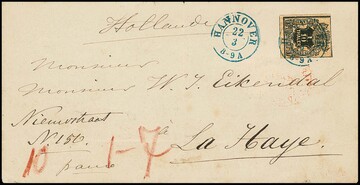 Hollande
HANNOVER
22
3
8-9A
10
8-9A
Monsieur
Monsieur W. J. Eikendal
Nieuwstraat
N. 156.
à
La Haye.
franco
10
1-7